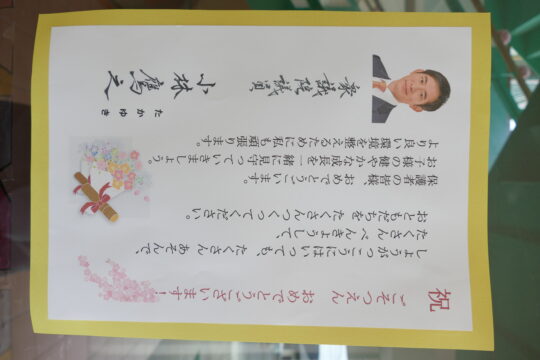 祝 ごそつえん おめでとうございます！
しょうがっこうにはいっても、たくさんあそんで、
たくさんべんきょうして、
おともだちをたくさんつくってください。
保護者の皆様、おめでとうございます。
お子様の健やかな成長を一緒に見守っていきましょう。
より良い環境を整えるために私も頑張ります。
衆議院議員
小林 鷹之
たかゆき